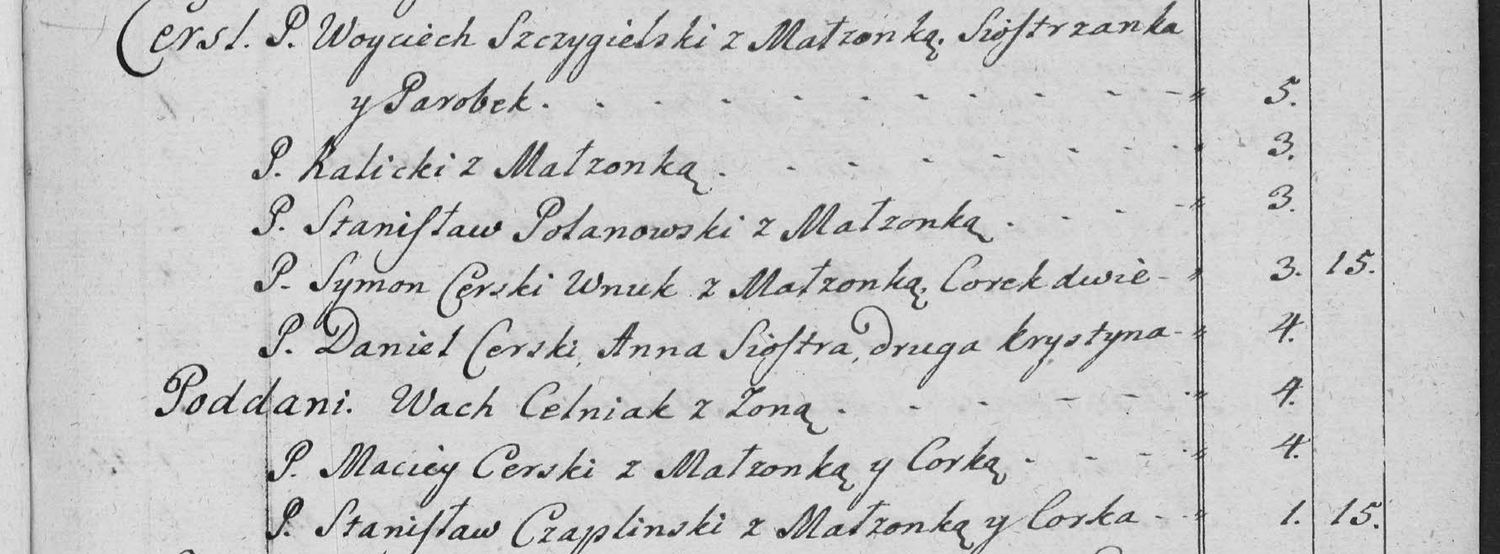 Cersl. P. Woyciech Szczygielski z Małzonką. Siostrzanka
y Parobek. 5.
P. Kalicki z Małzonką. 3.
P. Stanisław Polanowski z Małzonką. 3.
P. Symon Cerski Wnuk z Małzonką, Corek dwie 3. 15.
P. Daniel Cerski, Anna Siostra, druga Krystyna 4.
Poddani. Wach Celniak z Zoną. 4.
P. Maciey Cerski z Małzonką y Corką 4.
P. Stanisław Czaplinski z Małzonką y Corka 1. 15.